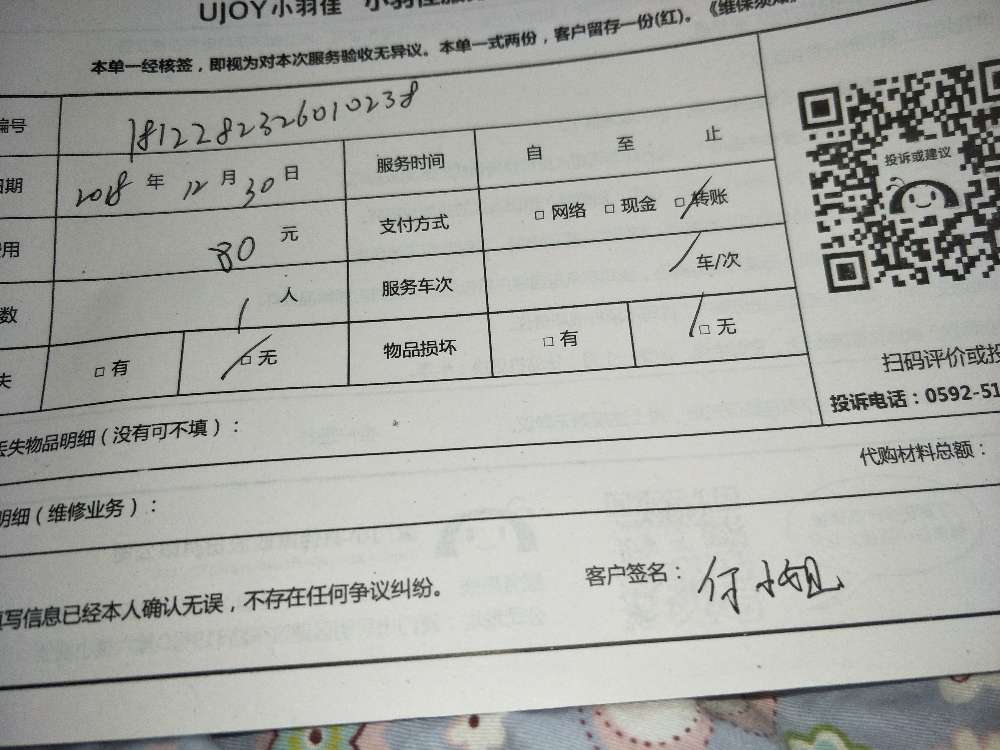 UJOY小羽佳 小羽佳服
本单一经核签，即视为对本次服务验收无异议。本单一式两份，客户留存一份(红)。《维保须知
编号 1812282326010238
日期 2018 年 12 月 30 日 服务时间 自 至 止
费用 80 元 支付方式 □ 网络 □ 现金 □ 转账
数 1 人 服务车次 / 车/次
失 □ 有 □ 无 物品损坏 □ 有 □ 无
投诉或建议
扫码评价或投
投诉电话：0592-51
丢失物品明细（没有可不填）：
明细（维修业务）：
代购材料总额：
填写信息已经本人确认无误，不存在任何争议纠纷。
客户签名：何小姐